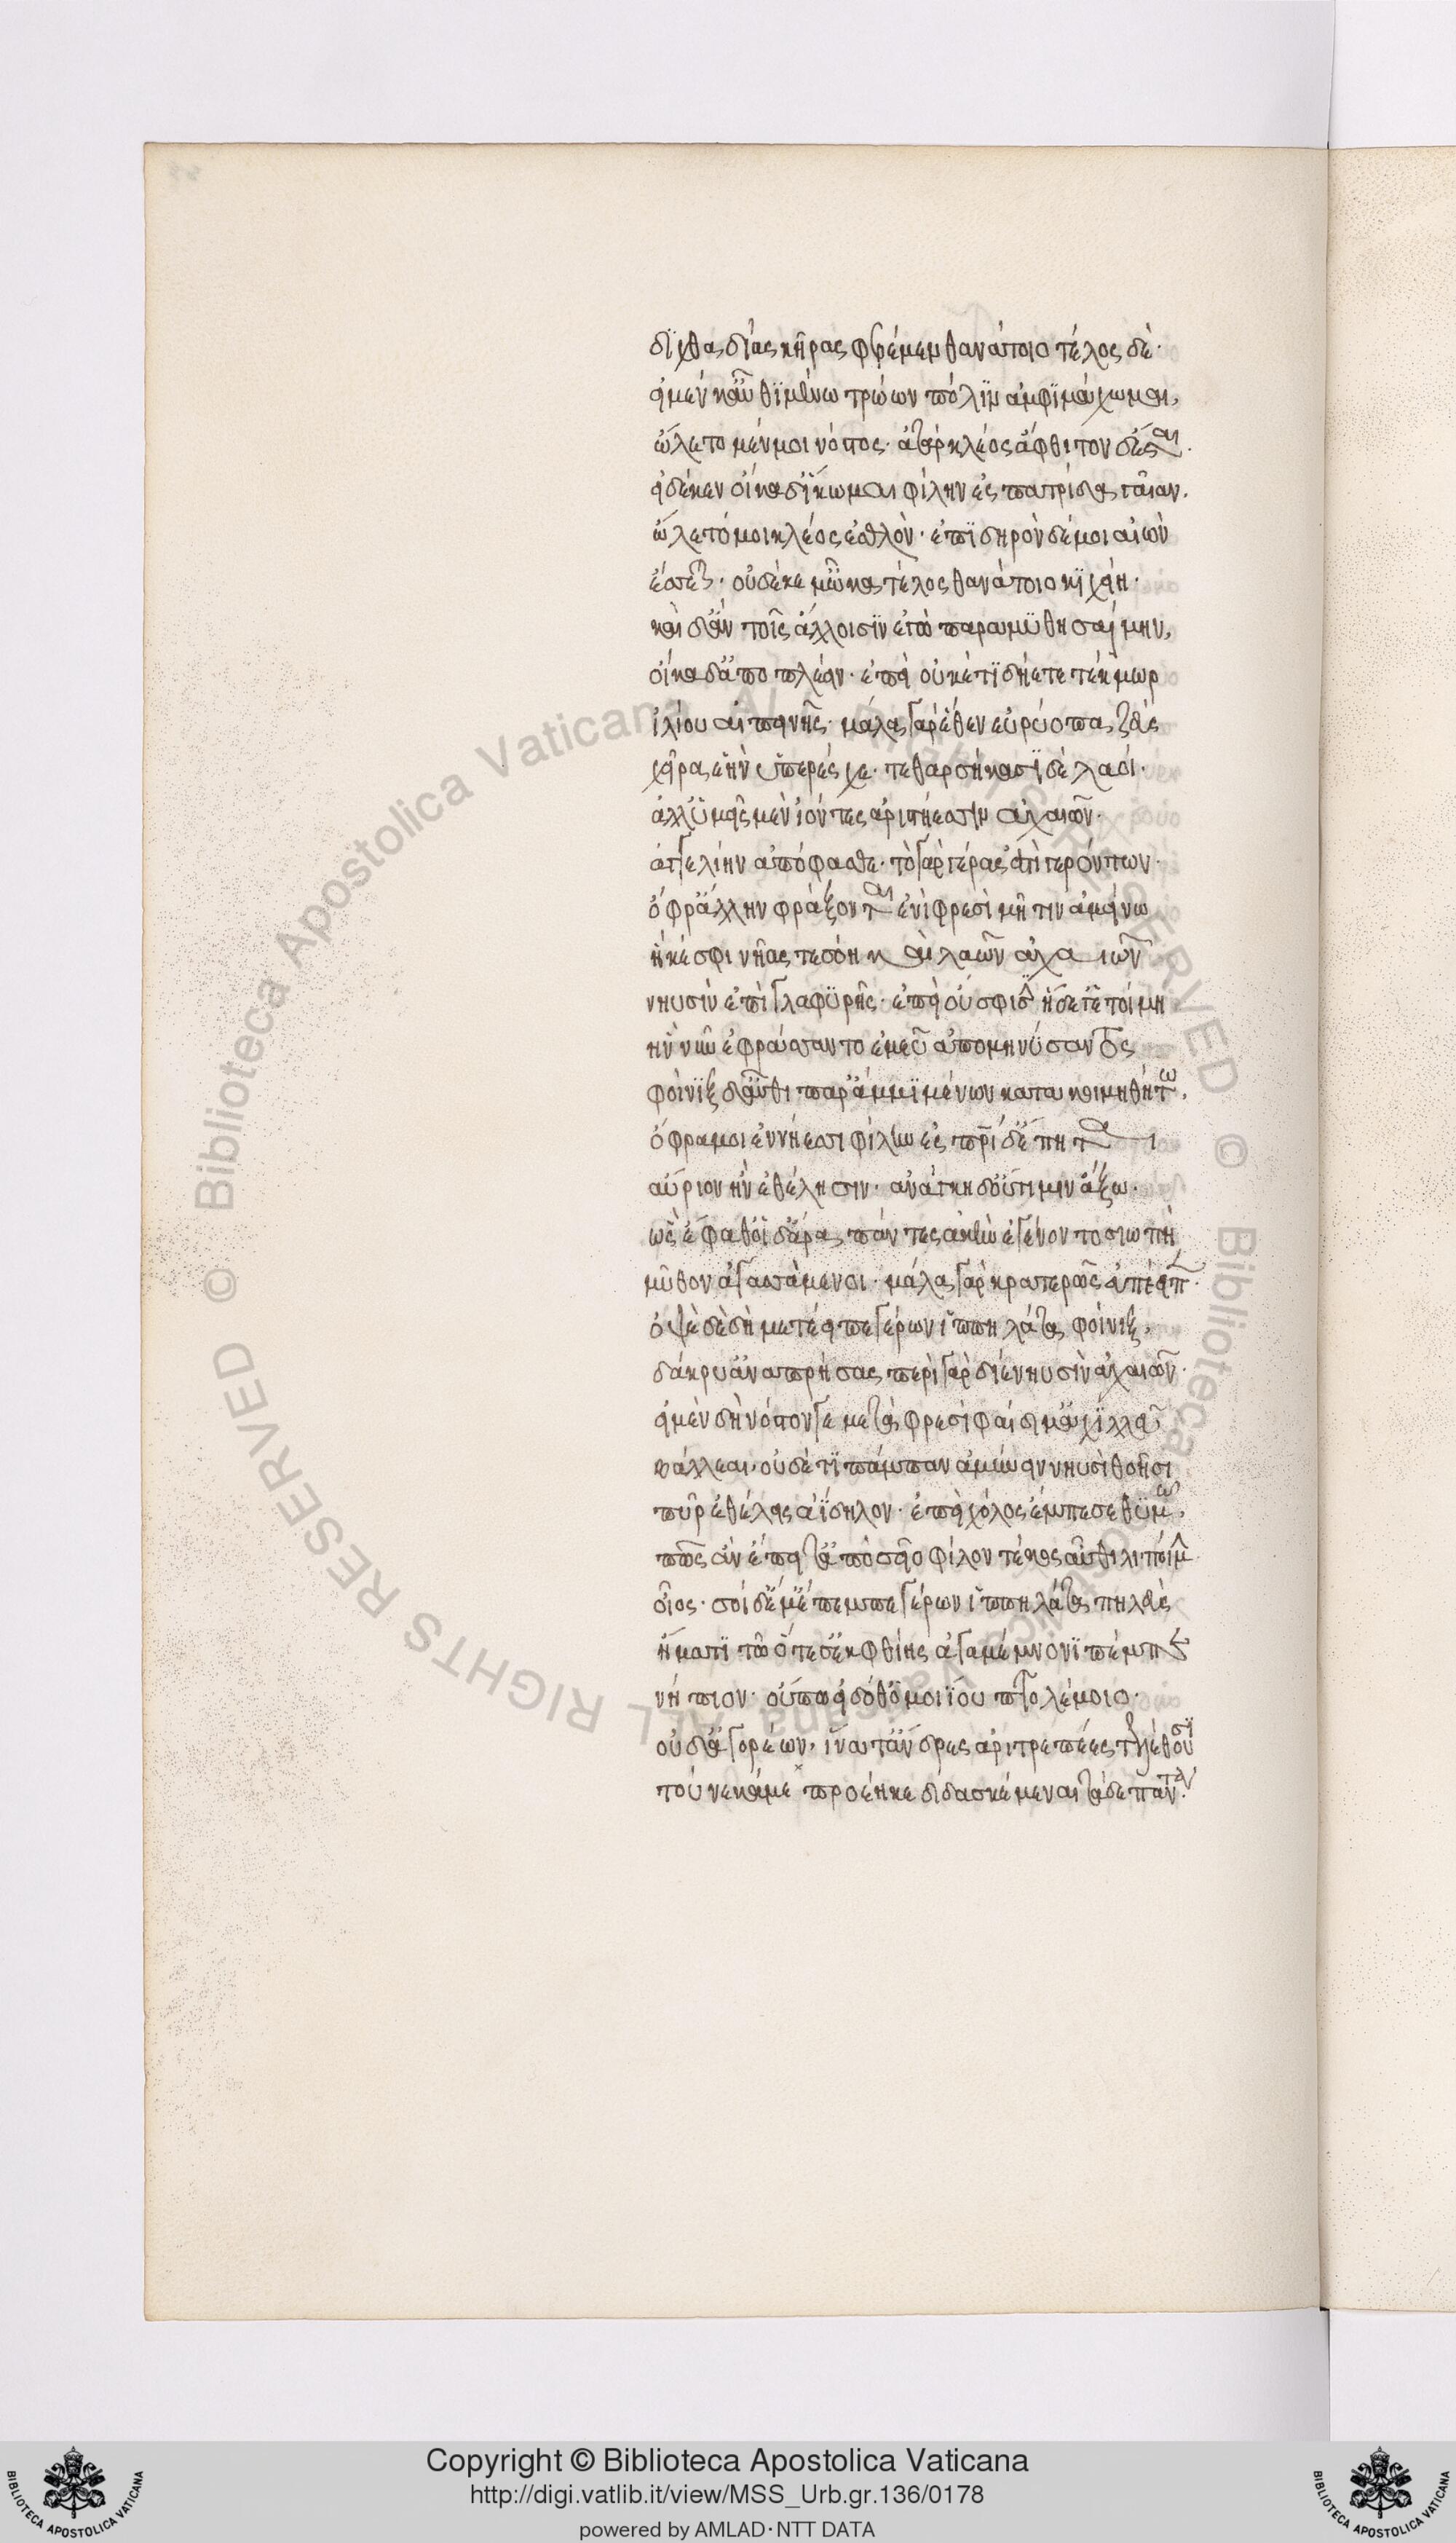 διχθαδίας κῆρας φερέμεν θανάτοιο τέλος δέ·
εἰ μέν κ' αὖθι μένω τρώων πόλιν ἀμφιμάχωμαι,
ὤλετο μέν μοι νόστος· ἀτὰρ κλέος ἄφθιτον ἔσται.
εἰ δέ κεν οἴκαδ' ἵκωμαι φίλην ἐς πατρίδα γαῖαν.
ὤλετό μοι κλέος ἐσθλὸν· ἐπὶ δηρὸν δέ μοι αἰὼν
ἔσσεται· οὐδέ κέ μ' ὦκα τέλος θανάτοιο κιχείη·
καὶ δ' ἂν τοῖς ἄλλοισιν ἐγὼ παραμυθησαίμην,
οἴκαδ' ἀποπλέειν· ἐπεὶ οὐκέτι δήετε τέκμωρ
ἰλίου αἰπεινῆς· μάλα γάρ ἑθεν εὐρύοπα ζεὺς
χεῖρα ἑὴν ὑπερέσχε· τεθαρσήκασι δὲ λαοί·
ἀλλ' ὑμεῖς μὲν ἰόντες ἀριστήεσσιν ἀχαιῶν·
ἀγγελίην ἀπόφασθε· τὸ γὰρ γέρας ἐστὶ γερόντων·
ὄφρ' ἄλλην φράζονται ἐνὶ φρεσὶ μῆτιν ἀμείνω
ἥ κέ σφι νῆας τε σόη καὶ λαὸν ἀχαιῶν
νηυσὶν ἐπὶ γλαφυρῆς· ἐπεὶ οὔ σφισιν ἥδε γ' ἑτοίμη
ἣν νῦν ἐφράσσαντο ἐμεῦ ἀπομηνίσαντος
φοίνιξ δ' αὖθι παρ' ἄμμι μένων κατακοιμηθήτω,
ὄφρα μοι ἐν νήεσσι φίλην ἐς πατρίδ' ἕπηται
αὔριον ἢν ἐθέλησιν· ἀνάγκη δ' οὔτι μιν ἄξω.
ὣς ἔφαθ' οἱ δ' ἄρα πάντες ἀκὴν ἐγένοντο σιωπῆ
μῦθον ἀγασσάμενοι· μάλα γὰρ κρατερῶς ἀπέειπε·
ὀψὲ δὲ δὴ μετέειπε γέρων ἱππηλάτα φοίνιξ,
δάκρυ' ἀναπρήσας περὶ γὰρ δίε νηυσὶν ἀχαιῶν·
εἰ μὲν δὴ νόστον γε μετὰ φρεσὶ φαίδιμ' ἀχιλλεῦ
βάλλεαι, οὐδέ τι πάμπαν ἀμύνειν νηυσὶ θοῆσι
πῦρ ἐθέλεις ἀΐδηλον· ἐπεὶ χόλος ἔμπεσε θυμῶ,
πῶς ἂν ἔπειτ' ἀπὸ σεῖο φίλον τέκος αὖθι λιποίμην
οἶος· σοὶ δέ μ' ἔπεμπε γέρων ἱππηλάτα πηλεὺς
ἤματι τῶ ὅτε σ' ἐκ φθίης ἀγαμέμνονι πέμπε
νήπιον· οὔπω εἰδόθ' ὁμοιΐου πτολέμοιο·
οὐδ' ἀγορέων, ἵνα τ' ἄνδρες ἀριπρεπέες τελέθουσι
τοὔνεκά με προέηκε διδασκέμεναι τάδε πάντα.
Copyright © Biblioteca Apostolica Vaticana
http://digi.vatlib.it/view/MSS_Urb.gr.136/0178
powered by AMLAD·NTT DATA